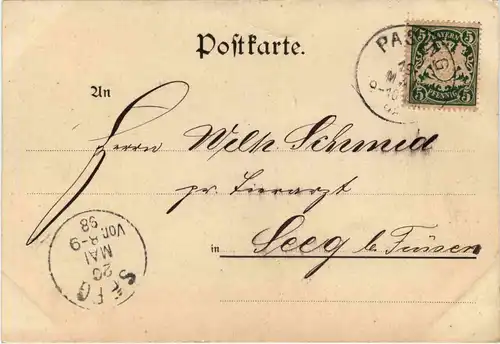 Postkarte.
PAS
BAYERN
5 5
PFENNIG
An
Herrn Welh Schmid
pr. Tierarzt
in Seeg b. Füssen
SEEG
20
MAI
Vor. 8-9
98